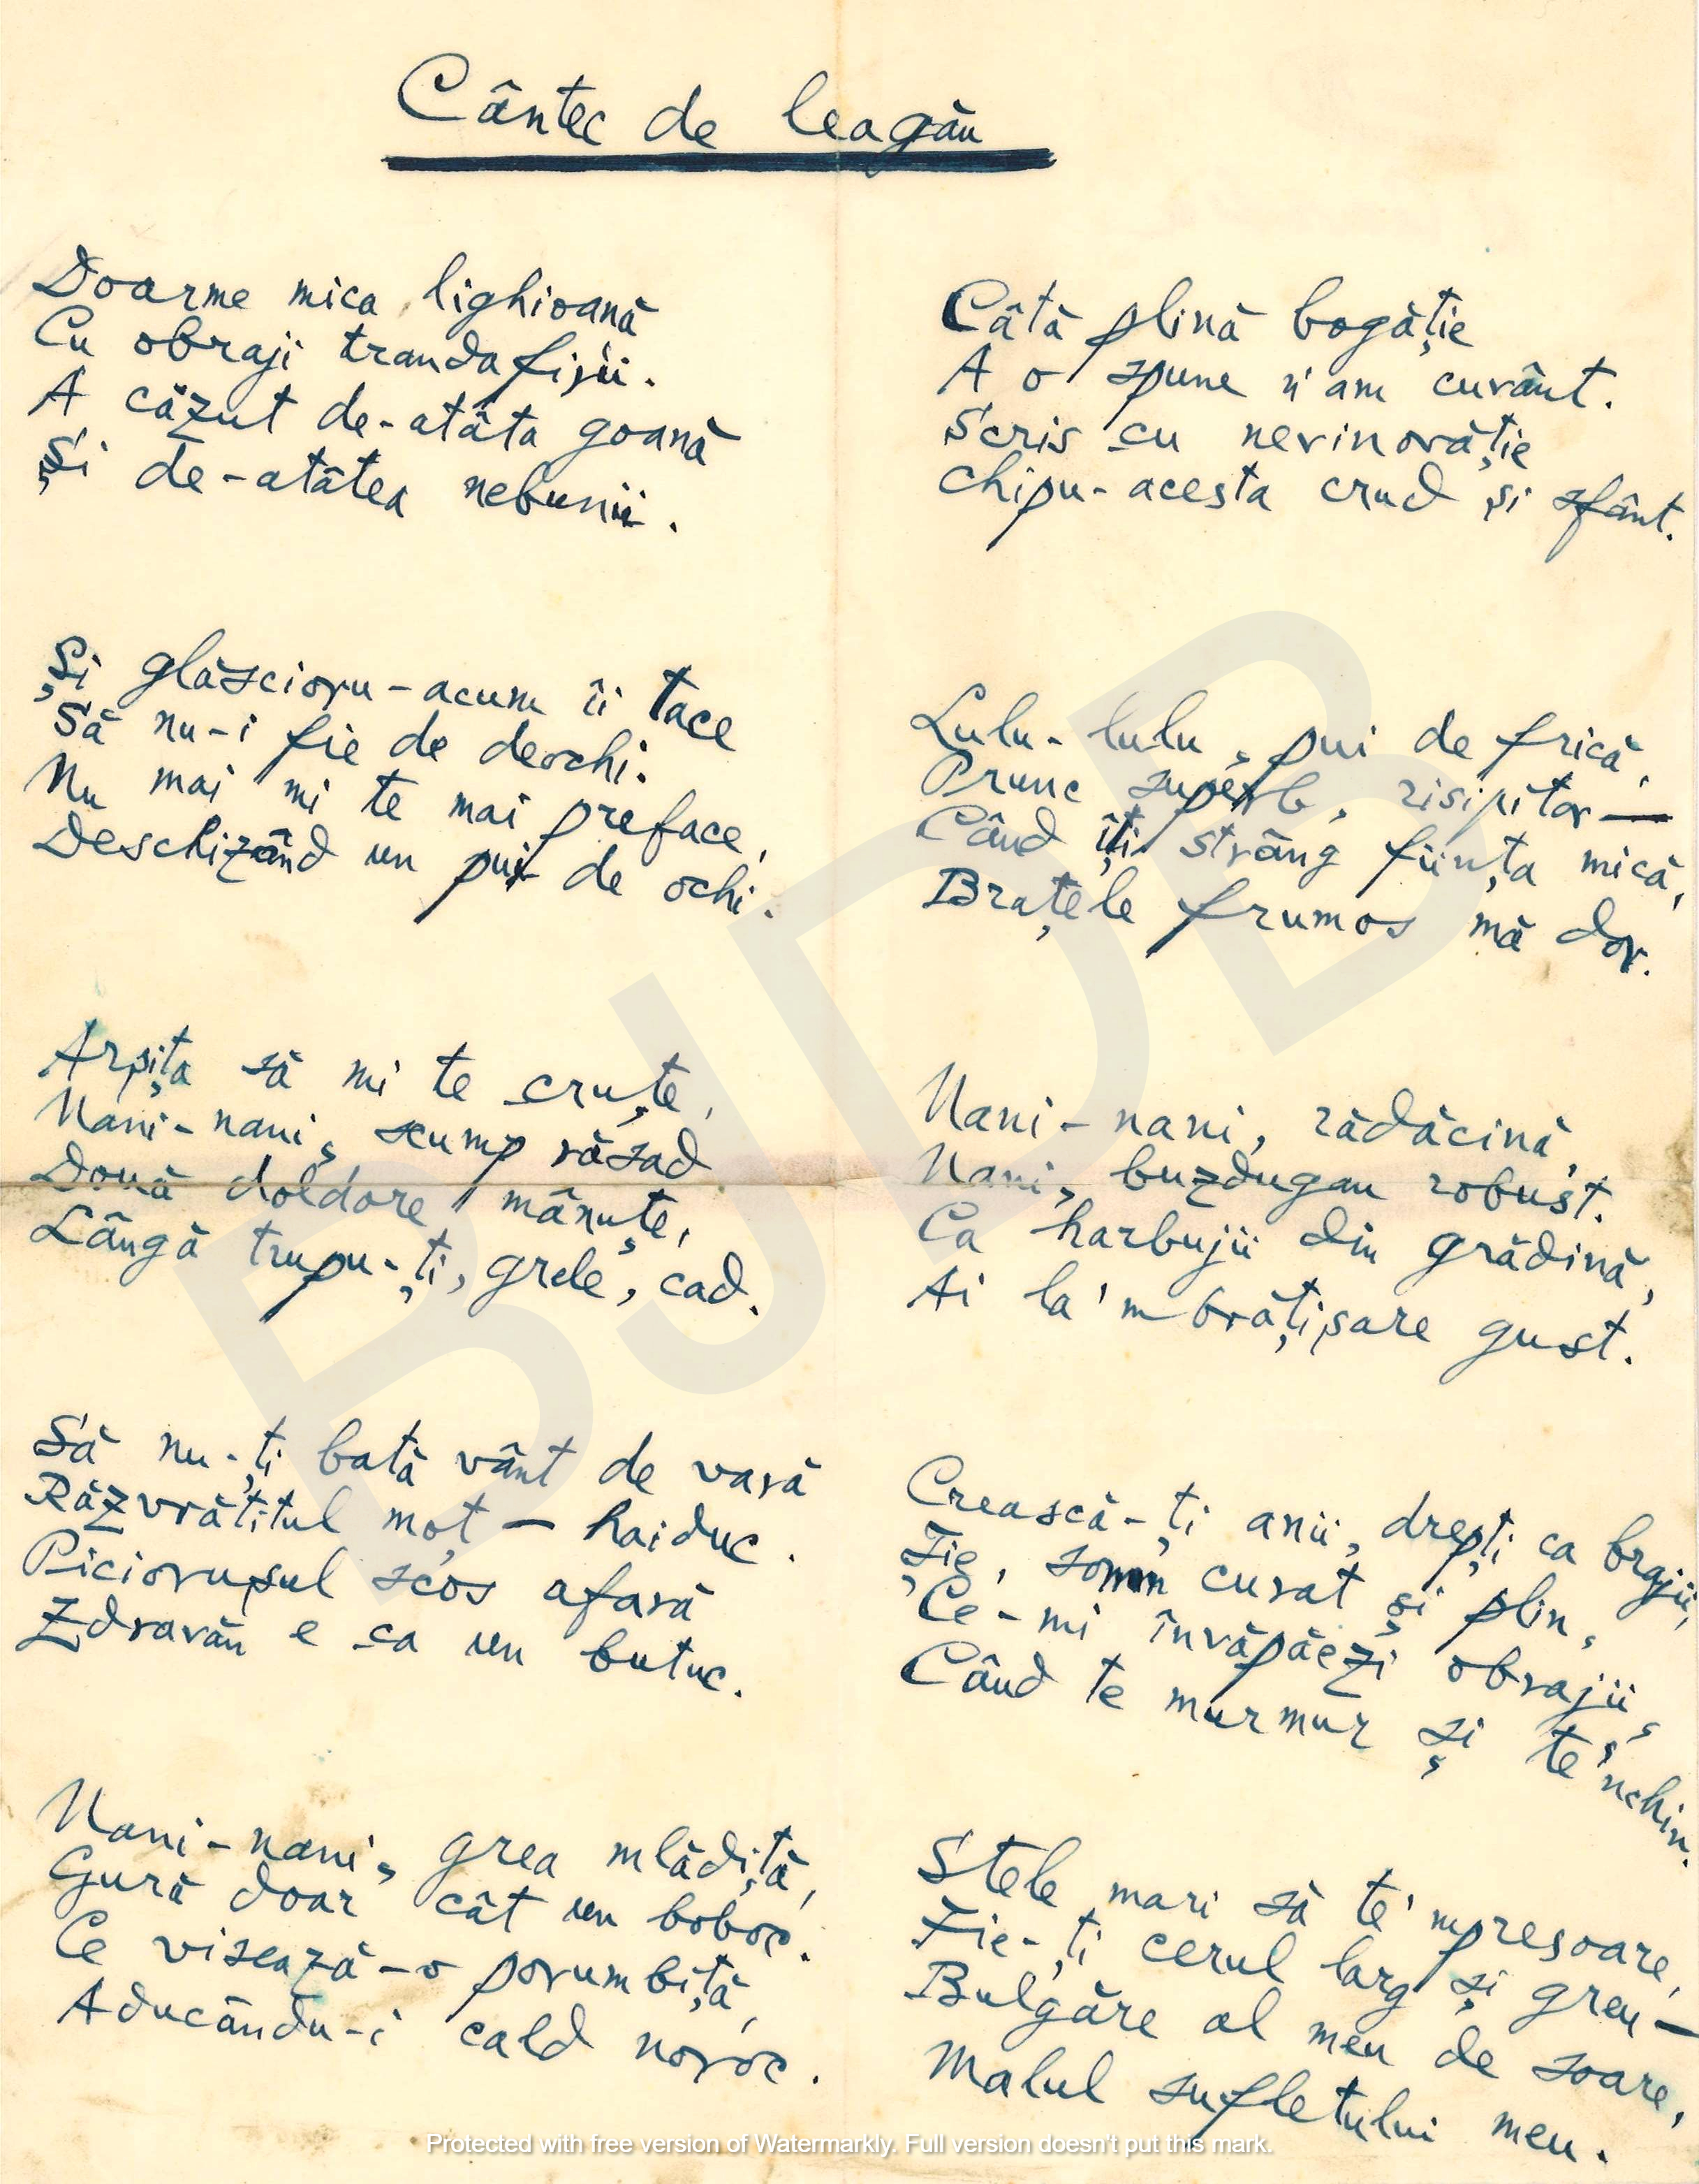 Cântec de leagăn
Doarme mica lighioană
Cu obraji trandafirii.
A căzut de-atâta goană
Și de-atâtea nebunii.
Și glăscioru-acum îi tace
Să nu-i fie de deochi.
Nu mai mi te mai preface,
Deschizând un pui de ochi.
Arșița să mi te cruțe,
Nani-nani, scump răsad
Două doldore mânuțe,
Lângă trupu-ți, grele, cad.
Să nu-ți bată vânt de vară
Răzvrătitul moț — haiduc.
Piciorușul scos afară
Zdravăn e ca un butuc.
Nani-nani, grea mlădiță,
Gură doar cât un boboc.
Ce visează-o porumbiță,
Aducându-i cald noroc.
Câtă plină bogăție
A o spune n'am cuvânt.
Scris cu nevinovăție
Chipu-acesta crud și sfânt.
Lulu-lulu, pui de frică,
Prunc superb, risipitor —
Când îți strâng ființa mică,
Brațele frumos mă dor.
Nani-nani, rădăcină,
Nani, buzdugan robust.
Ca harbujii din grădină,
Ai la'mbrățișare gust.
Crească-ți anii, drepți ca brajii,
Ție, somn curat și plin,
Ce-mi învăpăezi obrajii,
Când te murmur și te'nchin.
Stele mari să te'mpresoare,
Fie-ți cerul larg și greu —
Bulgăre al meu de soare,
Malul sufletului meu.
BJDB
Protected with free version of Watermarkly. Full version doesn't put this mark.